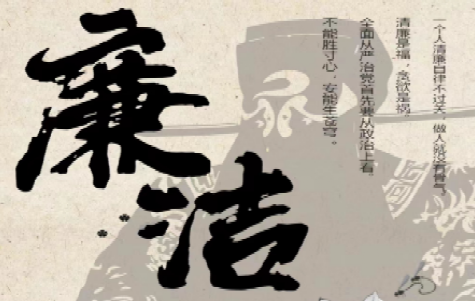 廉洁
一个人清廉自律不过关，做人就没有骨气。
清廉是福，贪欲是祸。
全面从严治党首先要从政治上看。
不能胜寸心，安能生苍穹。